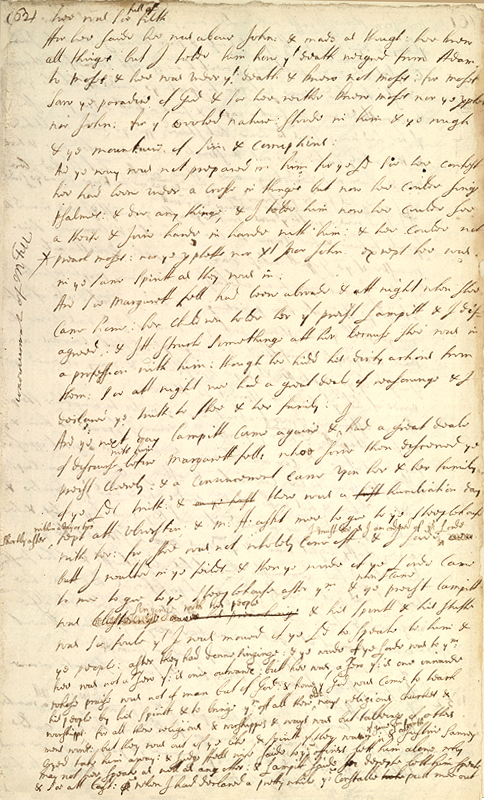 (62)
hee was soe full of filth
And hee saide hee was above John: & made as though hee knew
all things but I tolde him how yt death reigned from Adam
to moses & hee was under yt death & knew not moses: for moses
saw ye paradise of God & soe hee neither knew moses nor ye prophets
nor John: for yt crooked nature stoode in him & ye rough
& ye mountaine of sin & corruptions:
& ye way was not prepared in him for ye Ld & soe hee confest
hee had been under a crosse in things but now hee coulde singe
psalmes: & doe any thinge & I tolde him now hee coulde see
a theife & joine hande in hande with him: & hee coulde not
preach moses: nor ye prophets nor Xt nor John except hee was
in ye same spirit as they was in:
And soe Margarett Fell had been abroade & att night when shee
came home: her children tolde her yt preist Lampitt & I dis=
agreed: & Itt strucke somethinge att her because shee was in
a profession with him: though hee hid his dirty actions from
them: soe att night wee had a great deale of reasoninge & I
declared ye truth to shee & her family:
And ye next day Lampitt came againe & I had a great deale
of discourse with him before Margarett Fell whoe soone then discerned ye
preist clearely: & a convincement came upon her & her family
of ye Lds truth: & there was a humiliation day
shortly after within a day or two kept att Ulverston & M: ff: askt mee to goe to ye steeplehouse
with her: for shee was not wholely come off: & I saide I must doe as I am ordered of ye Lorde
butt I walked in ye feilds & then ye worde of ye Lorde came
to mee to goe to ye steeplehouse after ym & when I came ye preist Lampitt
was singinge with his people & his spirit & his stuffe
was soe foule yt I was moved of ye Ld to speake to him &
ye people: after they had donne singinge: & ye worde of ye Lorde was to ym
hee was not a Jew yt is one outwarde: but hee was a Jew yt is one inwarde
whose praise was not of man but of God: & how yt God was come to teach
his people by his spirit & to bringe ym off all their olde ways religions churches &
worshipps for all their religions & worshipps & ways was but talkinge of others
words: but they was out of ye life & spirit yt they was in yt gave ym forth: & Justice Sawrey
cryed take him away: & Judge Fells wife saide to ye officers lett him alone why
may not hee speake as well as any other: & Lampitt saide for deceipte lett him speake
& soe att last: when I had declared a pretty while ye Constable putt mee out
convincement of M Fell